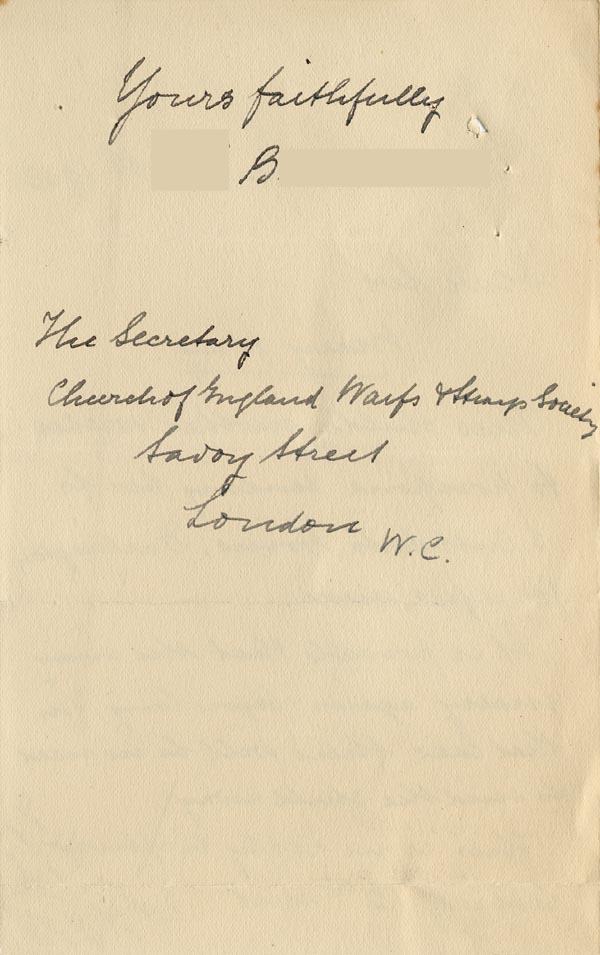 Yours faithfully
B.
The Secretary
Church of England Waifs & Strays Society
Savoy Street
London W.C.